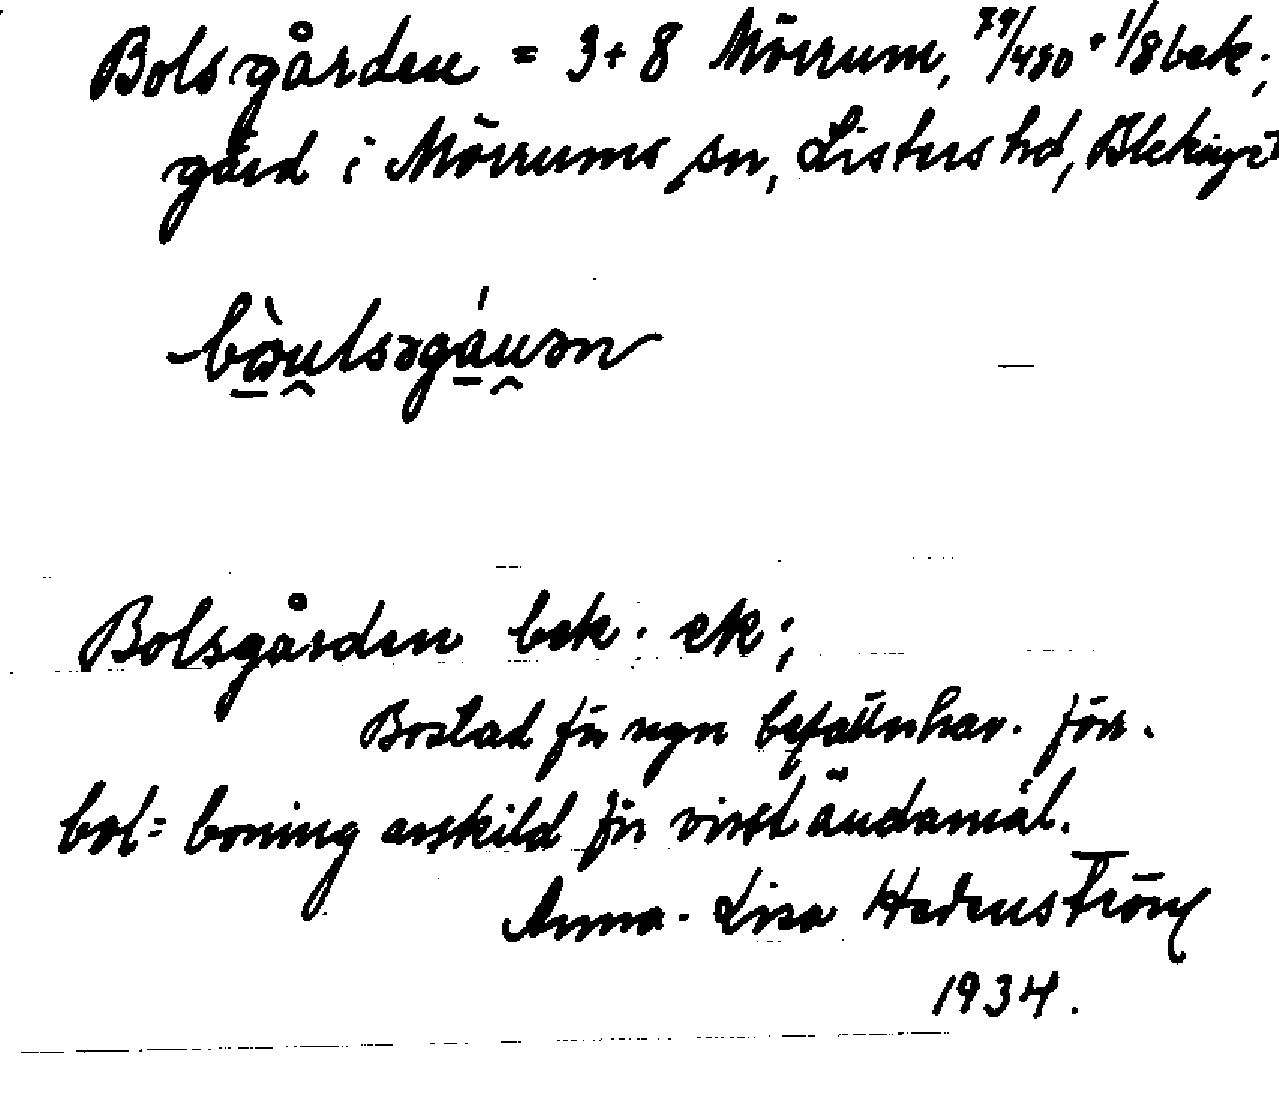 Bolsgården = 3 + 8 Mörrum, 79/480 + 1/8 bek.;
gård i Mörrums sn, Listers hd, Blekinge
Bolsgården bek. ek;
Bostad för ngn befattnhav. förr.
bol = boning enskild för visst ändamål.
Anna-Lisa Hedenström
1934.